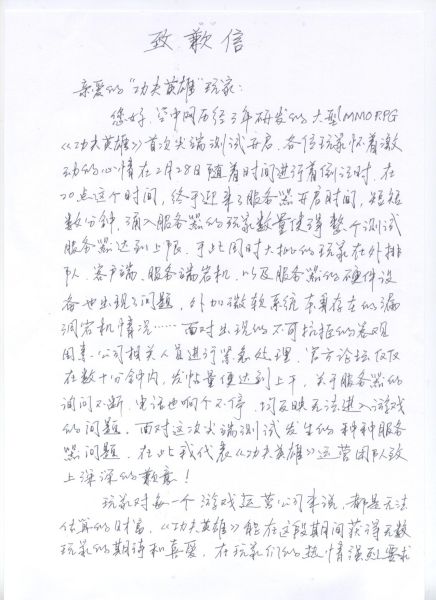 致歉信
亲爱的“功夫英雄”玩家：
您好，空中网历经3年研发的大型MMORPG
《功夫英雄》首次尖端测试开启，各位玩家怀着激
动的心情在2月28日随着时间进行着倒计时，在
20点这个时间，终于迎来了服务器开启时间，短短
数分钟，涌入服务器的玩家数量使得整个测试
服务器达到上限，于此同时大批的玩家在外排
队，客户端、服务端宕机，以及服务器的硬件设
备也出现了问题，外加微软系统本身存在的漏
洞宕机情况……面对出现的不可抗拒的客观
因素，公司相关人员进行紧急处理，官方论坛仅仅
在数十分钟内，发帖量便达到上千，关于服务器的
询问不断，电话也响个不停，均反映无法进入游戏
的问题，面对这次尖端测试发生的种种服务
器问题，在此我代表《功夫英雄》运营团队致
上深深的歉意！
玩家对每一个游戏运营公司来说，都是无法
估算的财富，《功夫英雄》能在这段期间获得无数
玩家的期待和喜爱，在玩家们的热情强烈要求